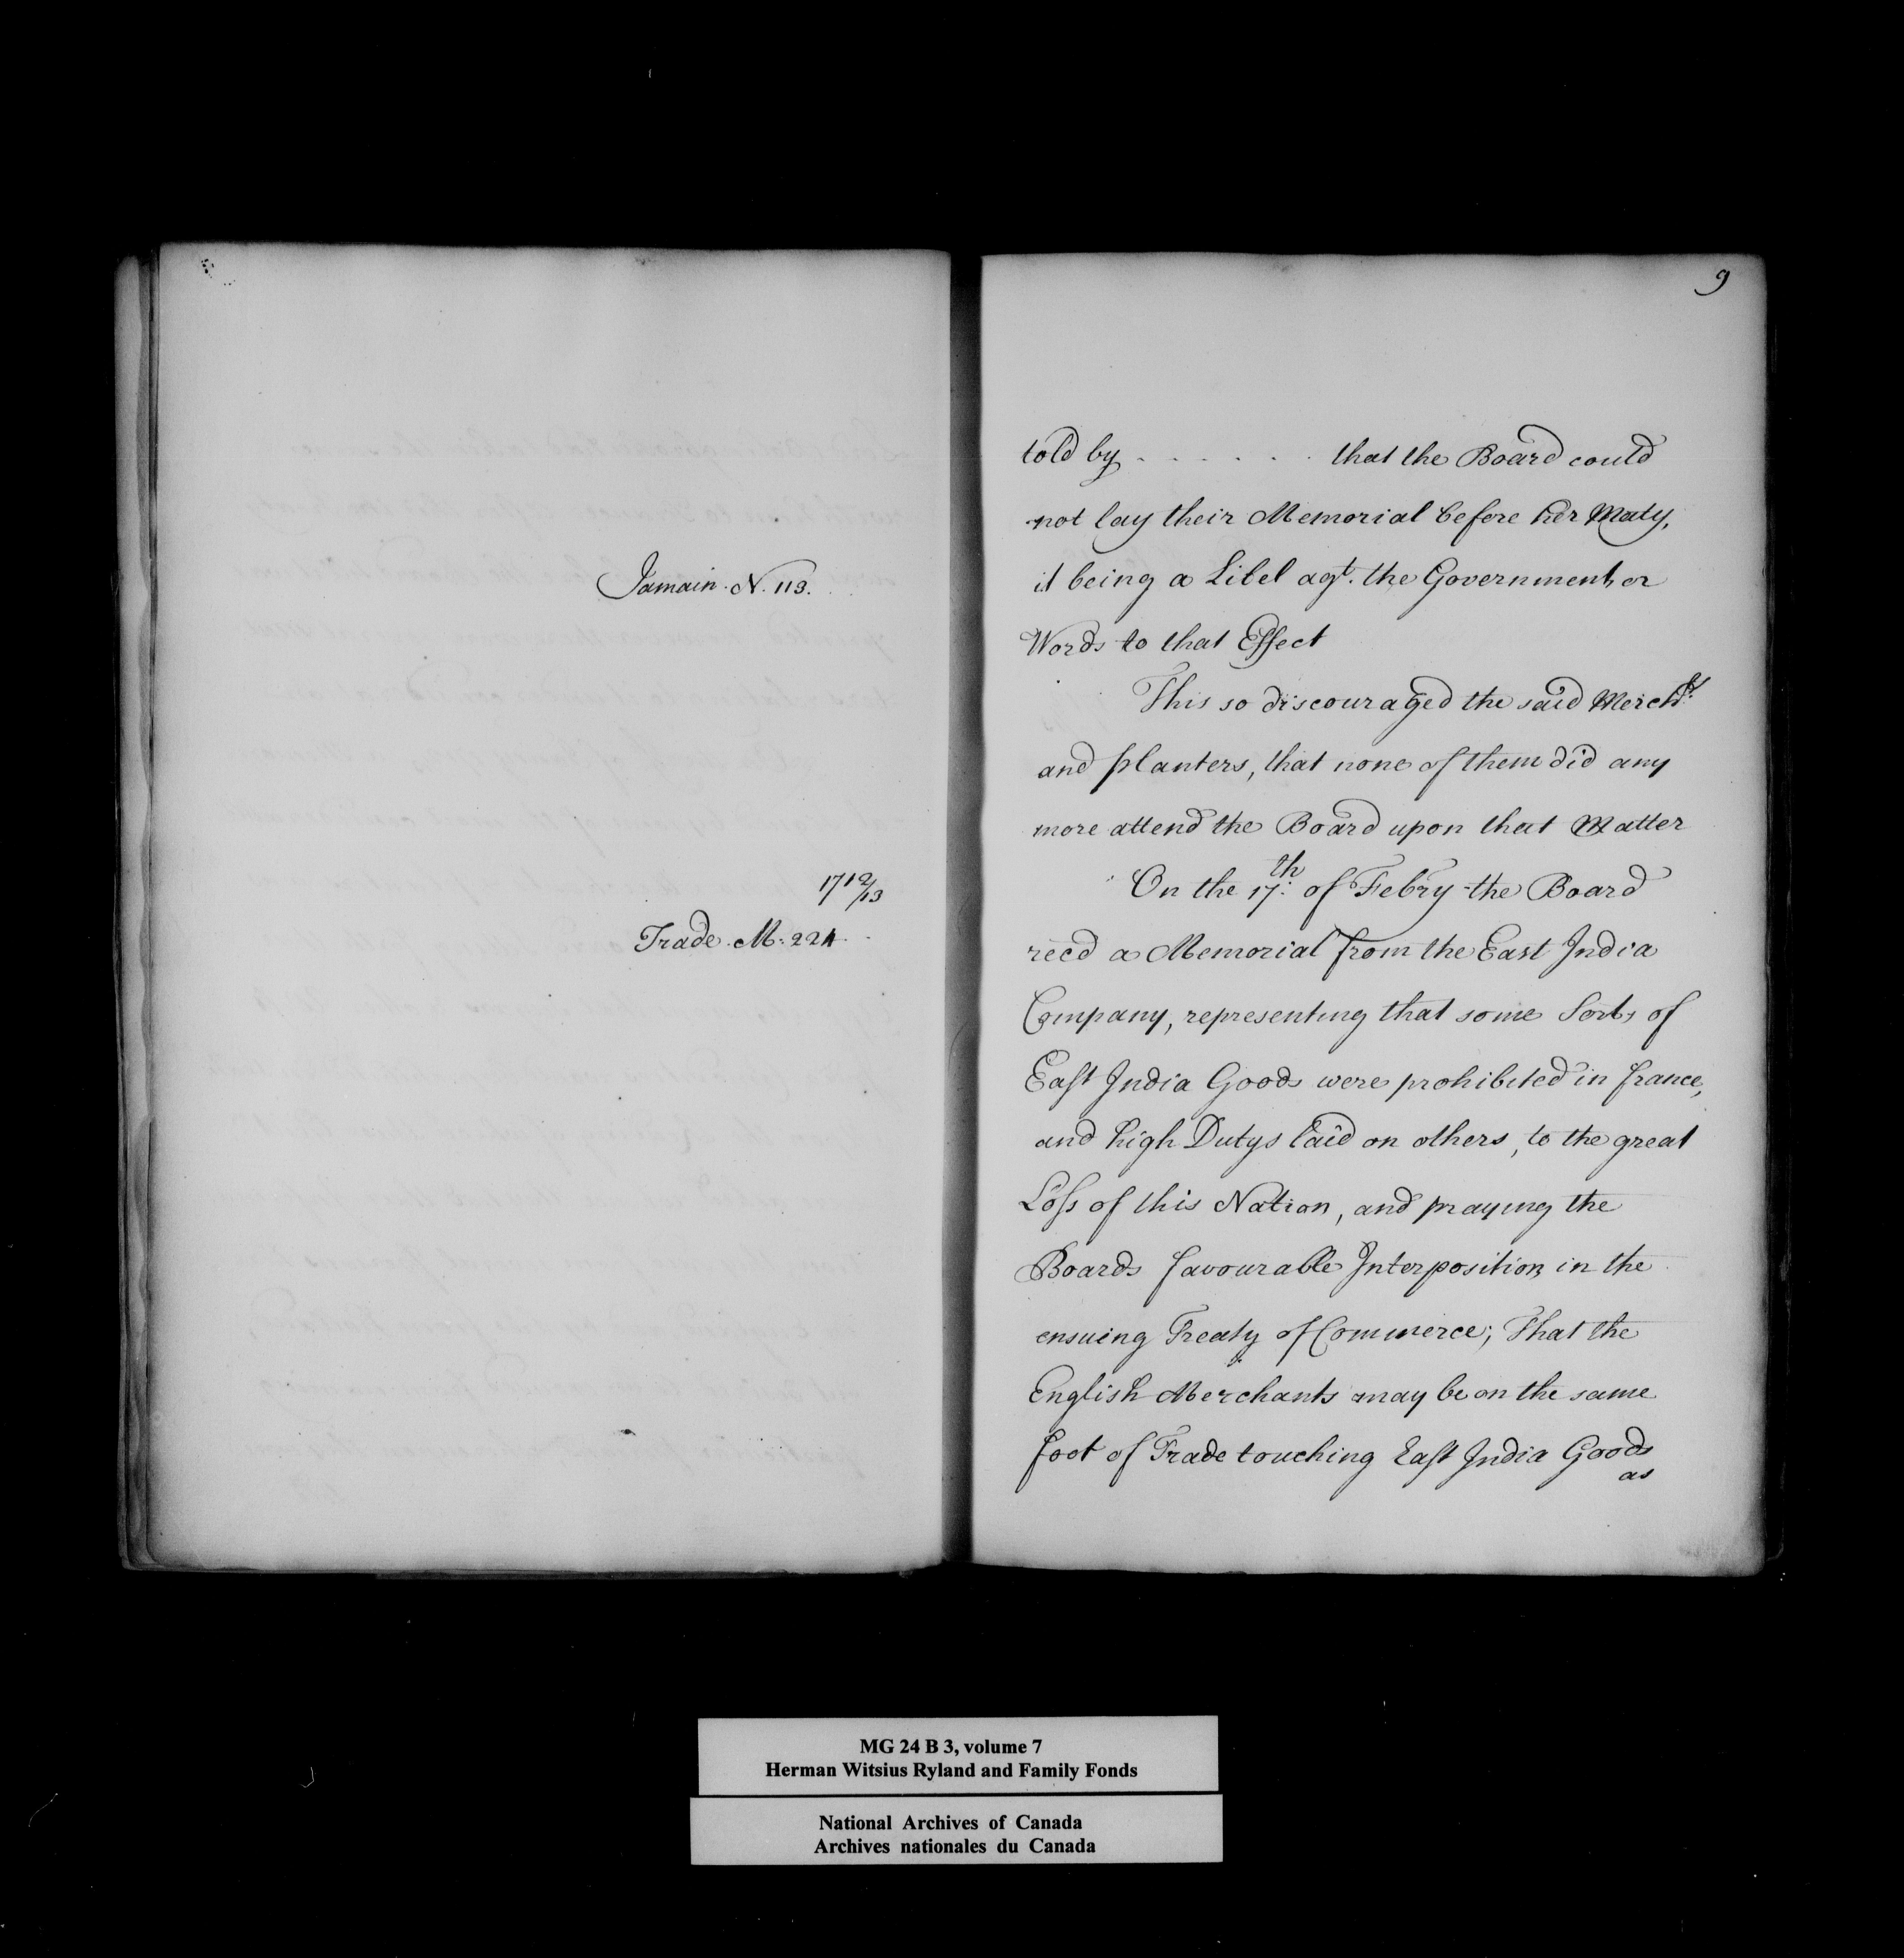 Jamain. N. 113.
1712/13
Trade. M: 224.
9
told by . . . . . . that the Board could
not lay their Memorial before her Maty,
it being a Libel agt. the Government, or
Words to that Effect
This so discouraged the said Merchts.
and planters, that none of them did any
more attend the Board upon that Matter
On the 17th. of Febry the Board
recd a Memorial from the East India
Company, representing that some Sorts of
East India Goods were prohibited in france,
and high Dutys laid on others, to the great
Loss of this Nation, and praying the
Boards favourable Interposition in the
ensuing Treaty of Commerce; That the
English Merchants may be on the same
foot of Trade touching East India Goods
as
MG 24 B 3, volume 7
Herman Witsius Ryland and Family Fonds
National Archives of Canada
Archives nationales du Canada